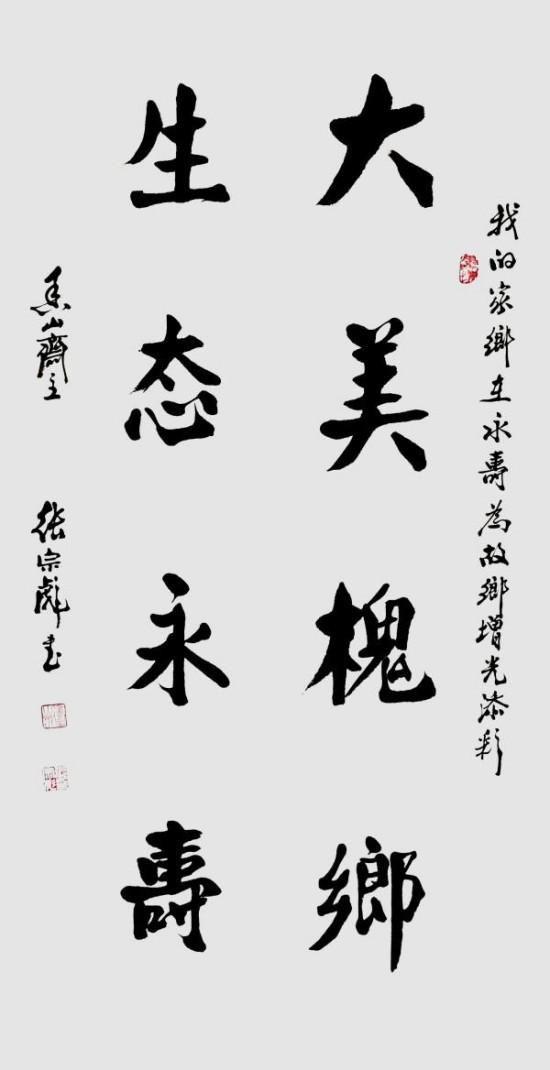 我的家鄉在永壽為故鄉增光添彩
大美槐鄉
生态永壽
香山齋主 張宗彪书